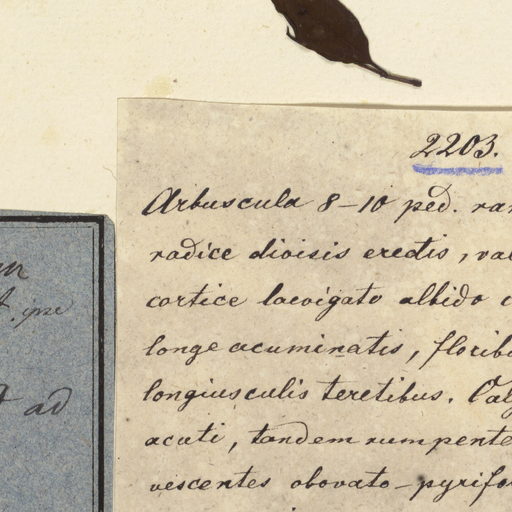 2203.
Arbuscula 8-10 ped. ra
radice divisis erectis, va
cortice laevigato albido
longe acuminatis, florib
longiusculis teretibus. Cal
acuti, tandem rumpente
vescentes obovato-pyrifo
ad